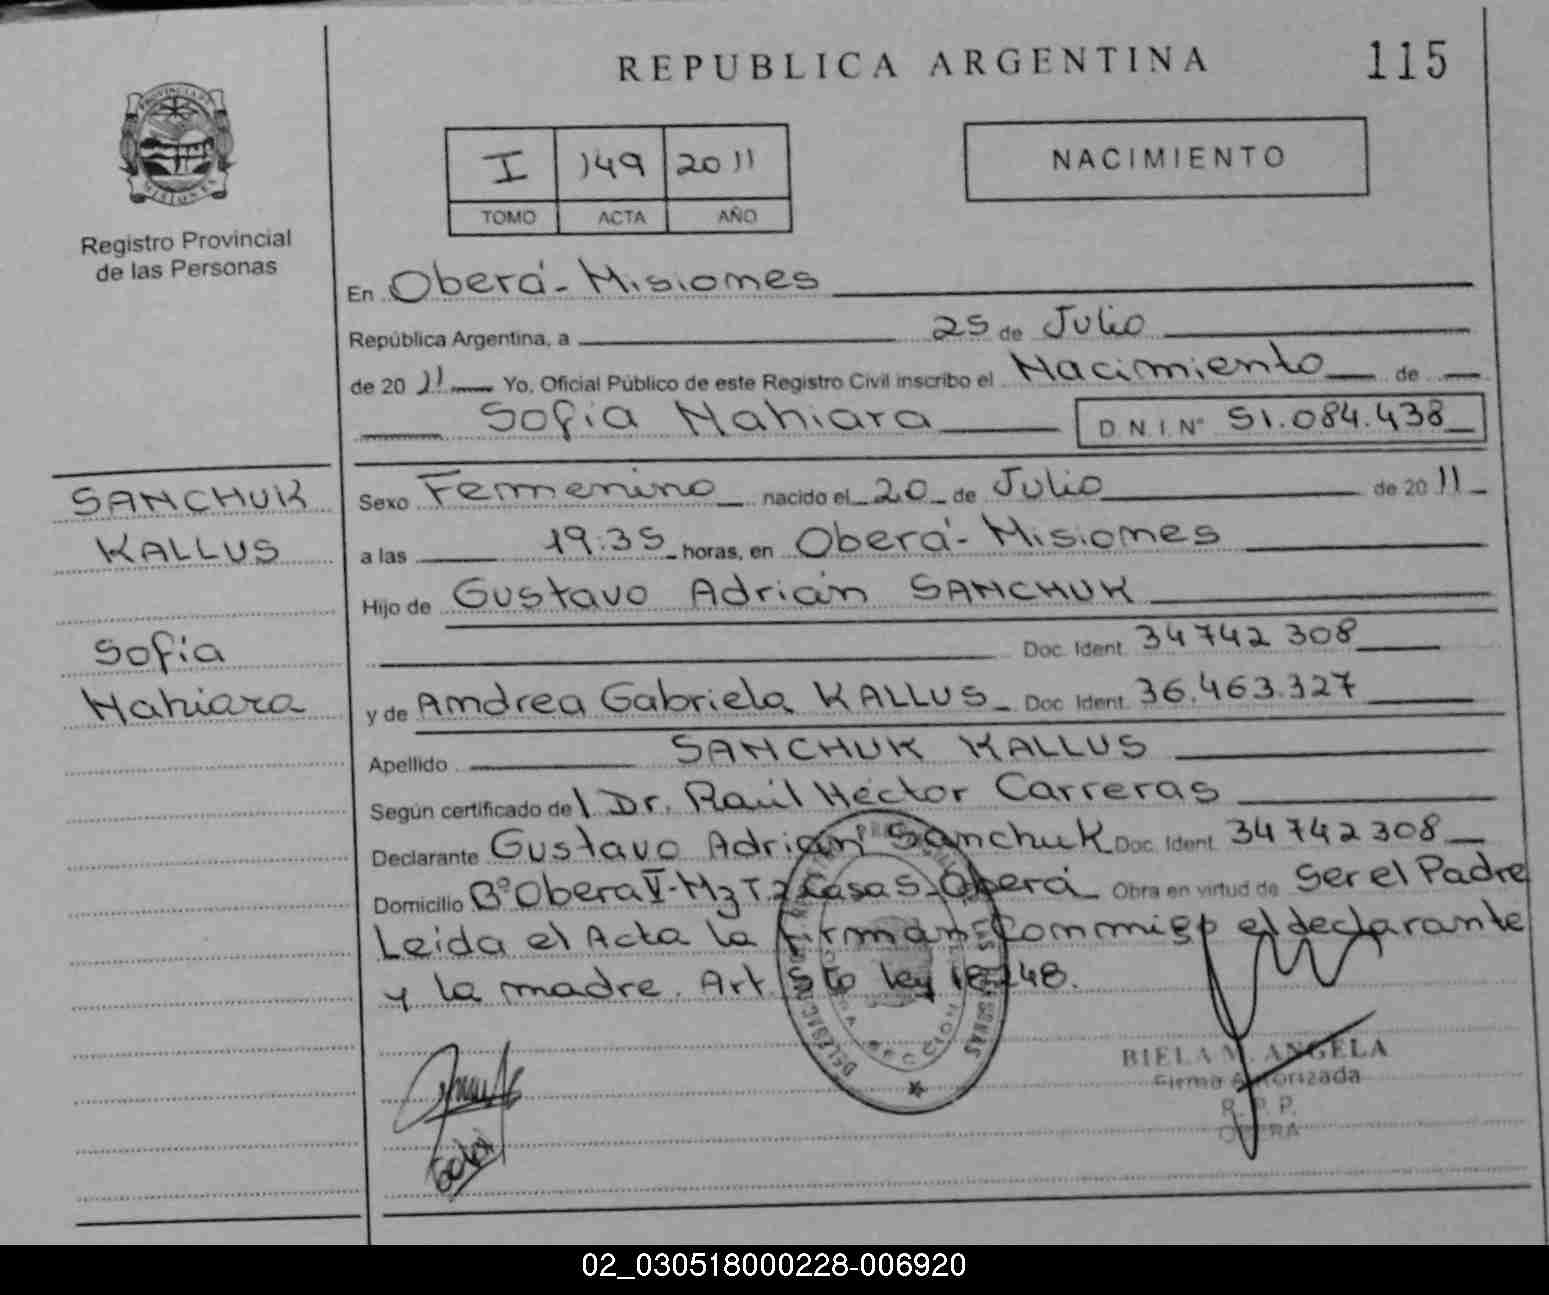 REPUBLICA ARGENTINA
115
PROVINCIA DE
MISIONES
Registro Provincial
de las Personas
I 149 2011
TOMO ACTA AÑO
NACIMIENTO
En Oberá - Misiones
República Argentina, a 25 de Julio
de 20 11 Yo, Oficial Público de este Registro Civil inscribo el Nacimiento de
Sofía Nahiara D.N.I. N° 51.084.438
SANCHUK
KALLUS
Sofía
Nahiara
Sexo Femenino nacido el 20 de Julio de 20 11
a las 19:35 horas, en Oberá - Misiones
Hijo de Gustavo Adrián SANCHUK
Doc. Ident. 34742308
y de Andrea Gabriela KALLUS Doc. Ident. 36.463.327
Apellido SANCHUK KALLUS
Según certificado del Dr. Raúl Héctor Carreras
Declarante Gustavo Adrián Sanchuk Doc. Ident. 34742308
Domicilio B° Obera V - Mz T.2 Casa 5 - Oberá Obra en virtud de Ser el Padre
Leída el Acta la firman conmigo el declarante
y la madre. Art. 5to ley 18248.
BIELA M. ANGELA
Firma Autorizada
R. P. P.
OBERA
02_030518000228-006920